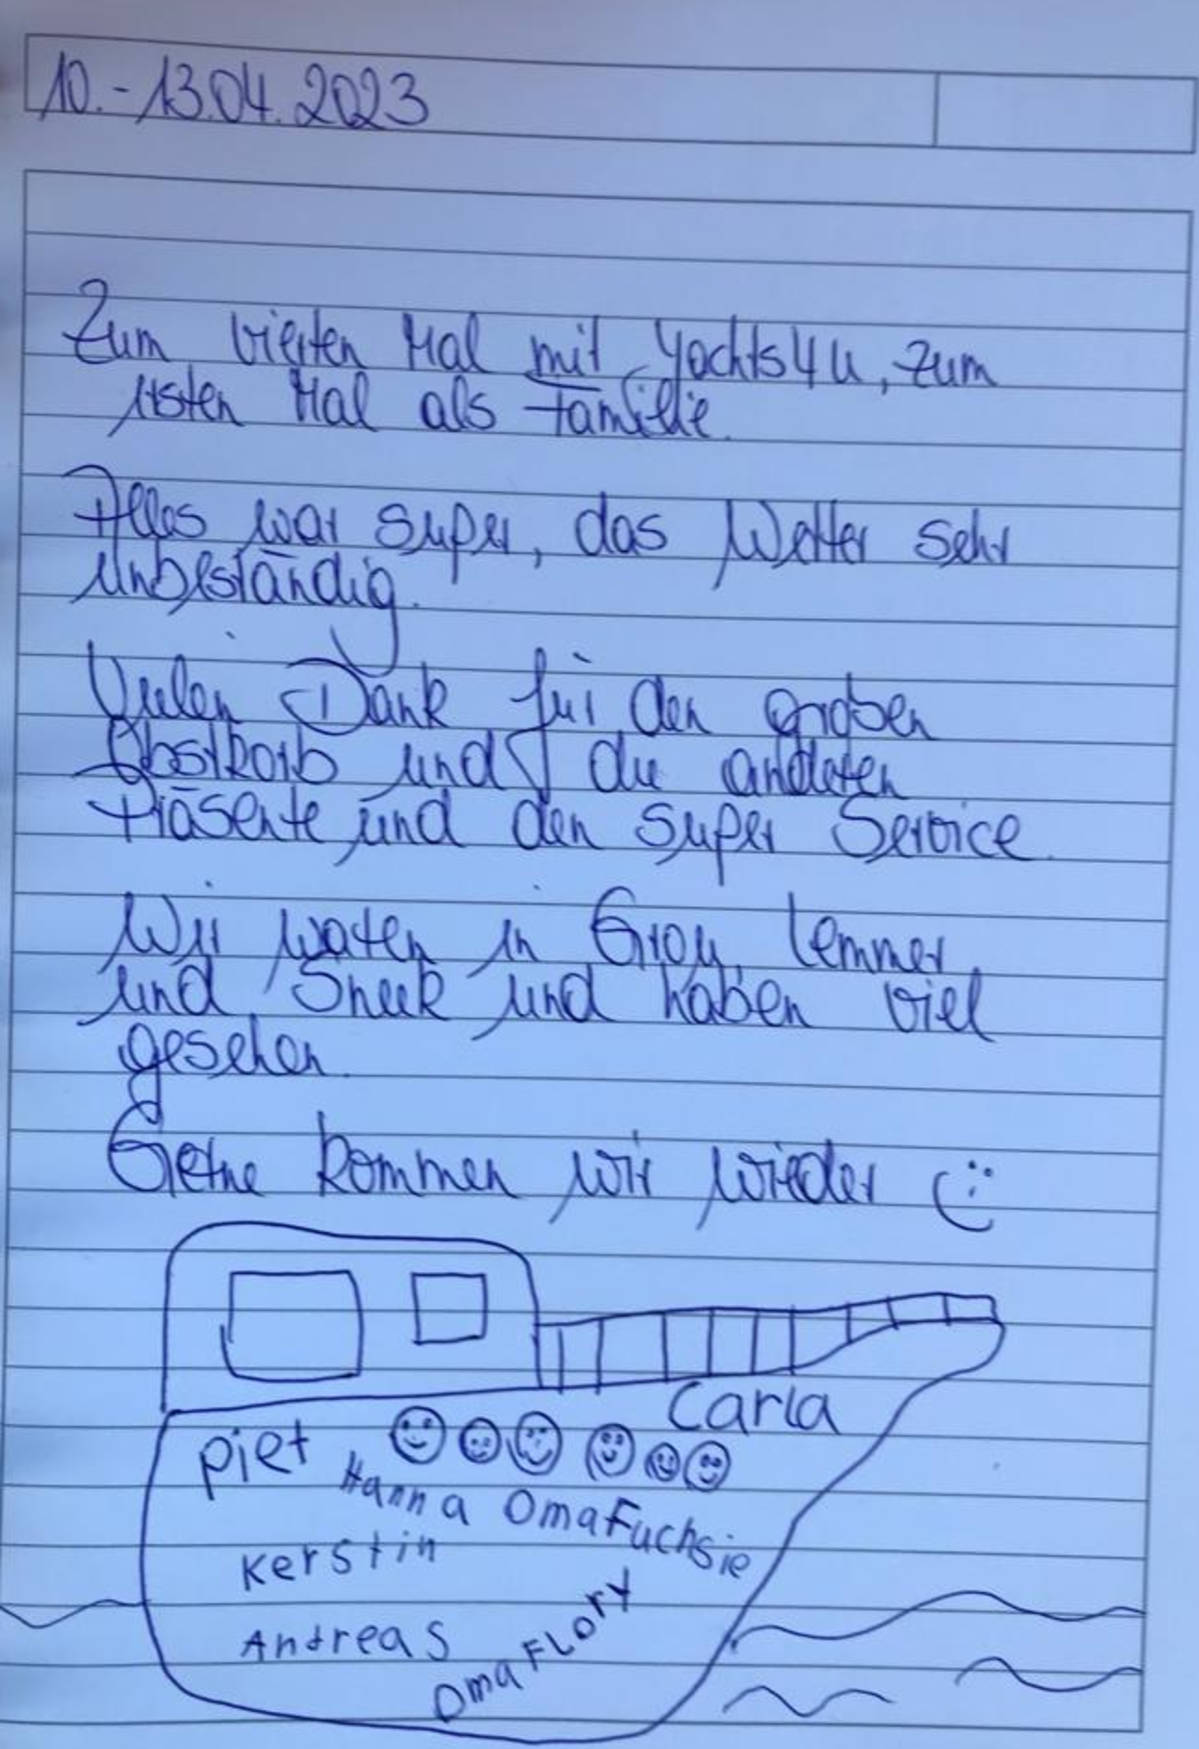 10.-13.04.2023
Zum vierten Mal mit Yachts4u, zum
ersten Mal als Familie.
Alles war super, das Wetter sehr
unbeständig.
Vielen Dank für den großen
Obstkorb und die anderen
Präsente und den super Service.
Wir waren in Grou, Lemmer
und Sneek und haben viel
gesehen.
Gerne kommen wir wieder (:
Carla
Piet
Hanna OmaFuchsie
Kerstin
Andreas
Oma FLORY